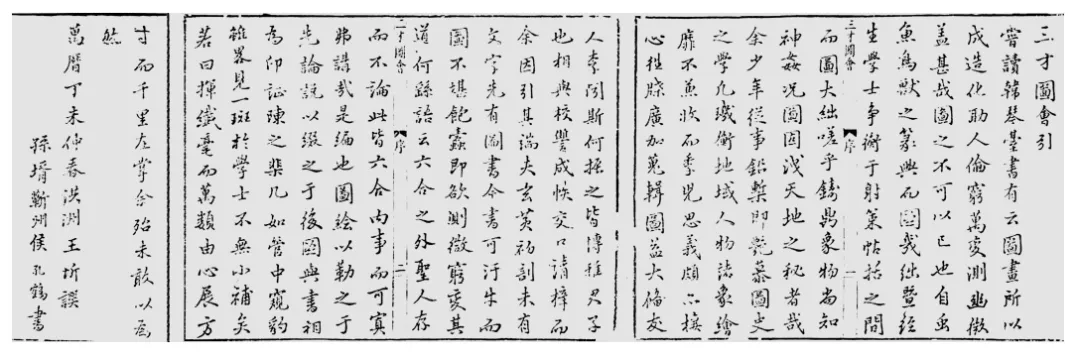 三才圖會引
嘗讀韓琴臺書有云圖畫所以
成造化助人倫窮萬變測幽微
蓋甚哉圖之不可以已也自蟲
魚鳥獸之篆興而圖幾絀暨經
生學士爭衡于射策帖括之間
三才圖會 序 一
而圖大絀嗟乎鑄鼎象物尚知
神姦況圖固洩天地之秘者哉
余少年從事鉛槧即艷慕圖史
之學凡璣衡地域人物諸象繪
靡不兼收而季兒思義頗亦操
心往牒廣加蒐輯圖益大備友
人李閏斯何振之皆博雅君子
也相與校讐成帙交口請梓而
余因引其端夫玄黃初剖未有
文字先有圖書今書可汗牛而
圖不堪飽蠹即欲測微窮變其
道何繇語云六合之外聖人存
三才圖會 序 二
而不論此皆六合內事而可寘
弗講哉是編也圖繪以勒之于
先論說以綴之于後圖與書相
為印證陳之棐几如管中窺豹
雖畧見一斑於學士不無小補矣
若曰揮纖毫而萬類由心展方
寸而千里在掌余殆未敢以為
然
萬曆丁未仲春洪洲王圻譔
孫壻蘄州侯孔鶴書